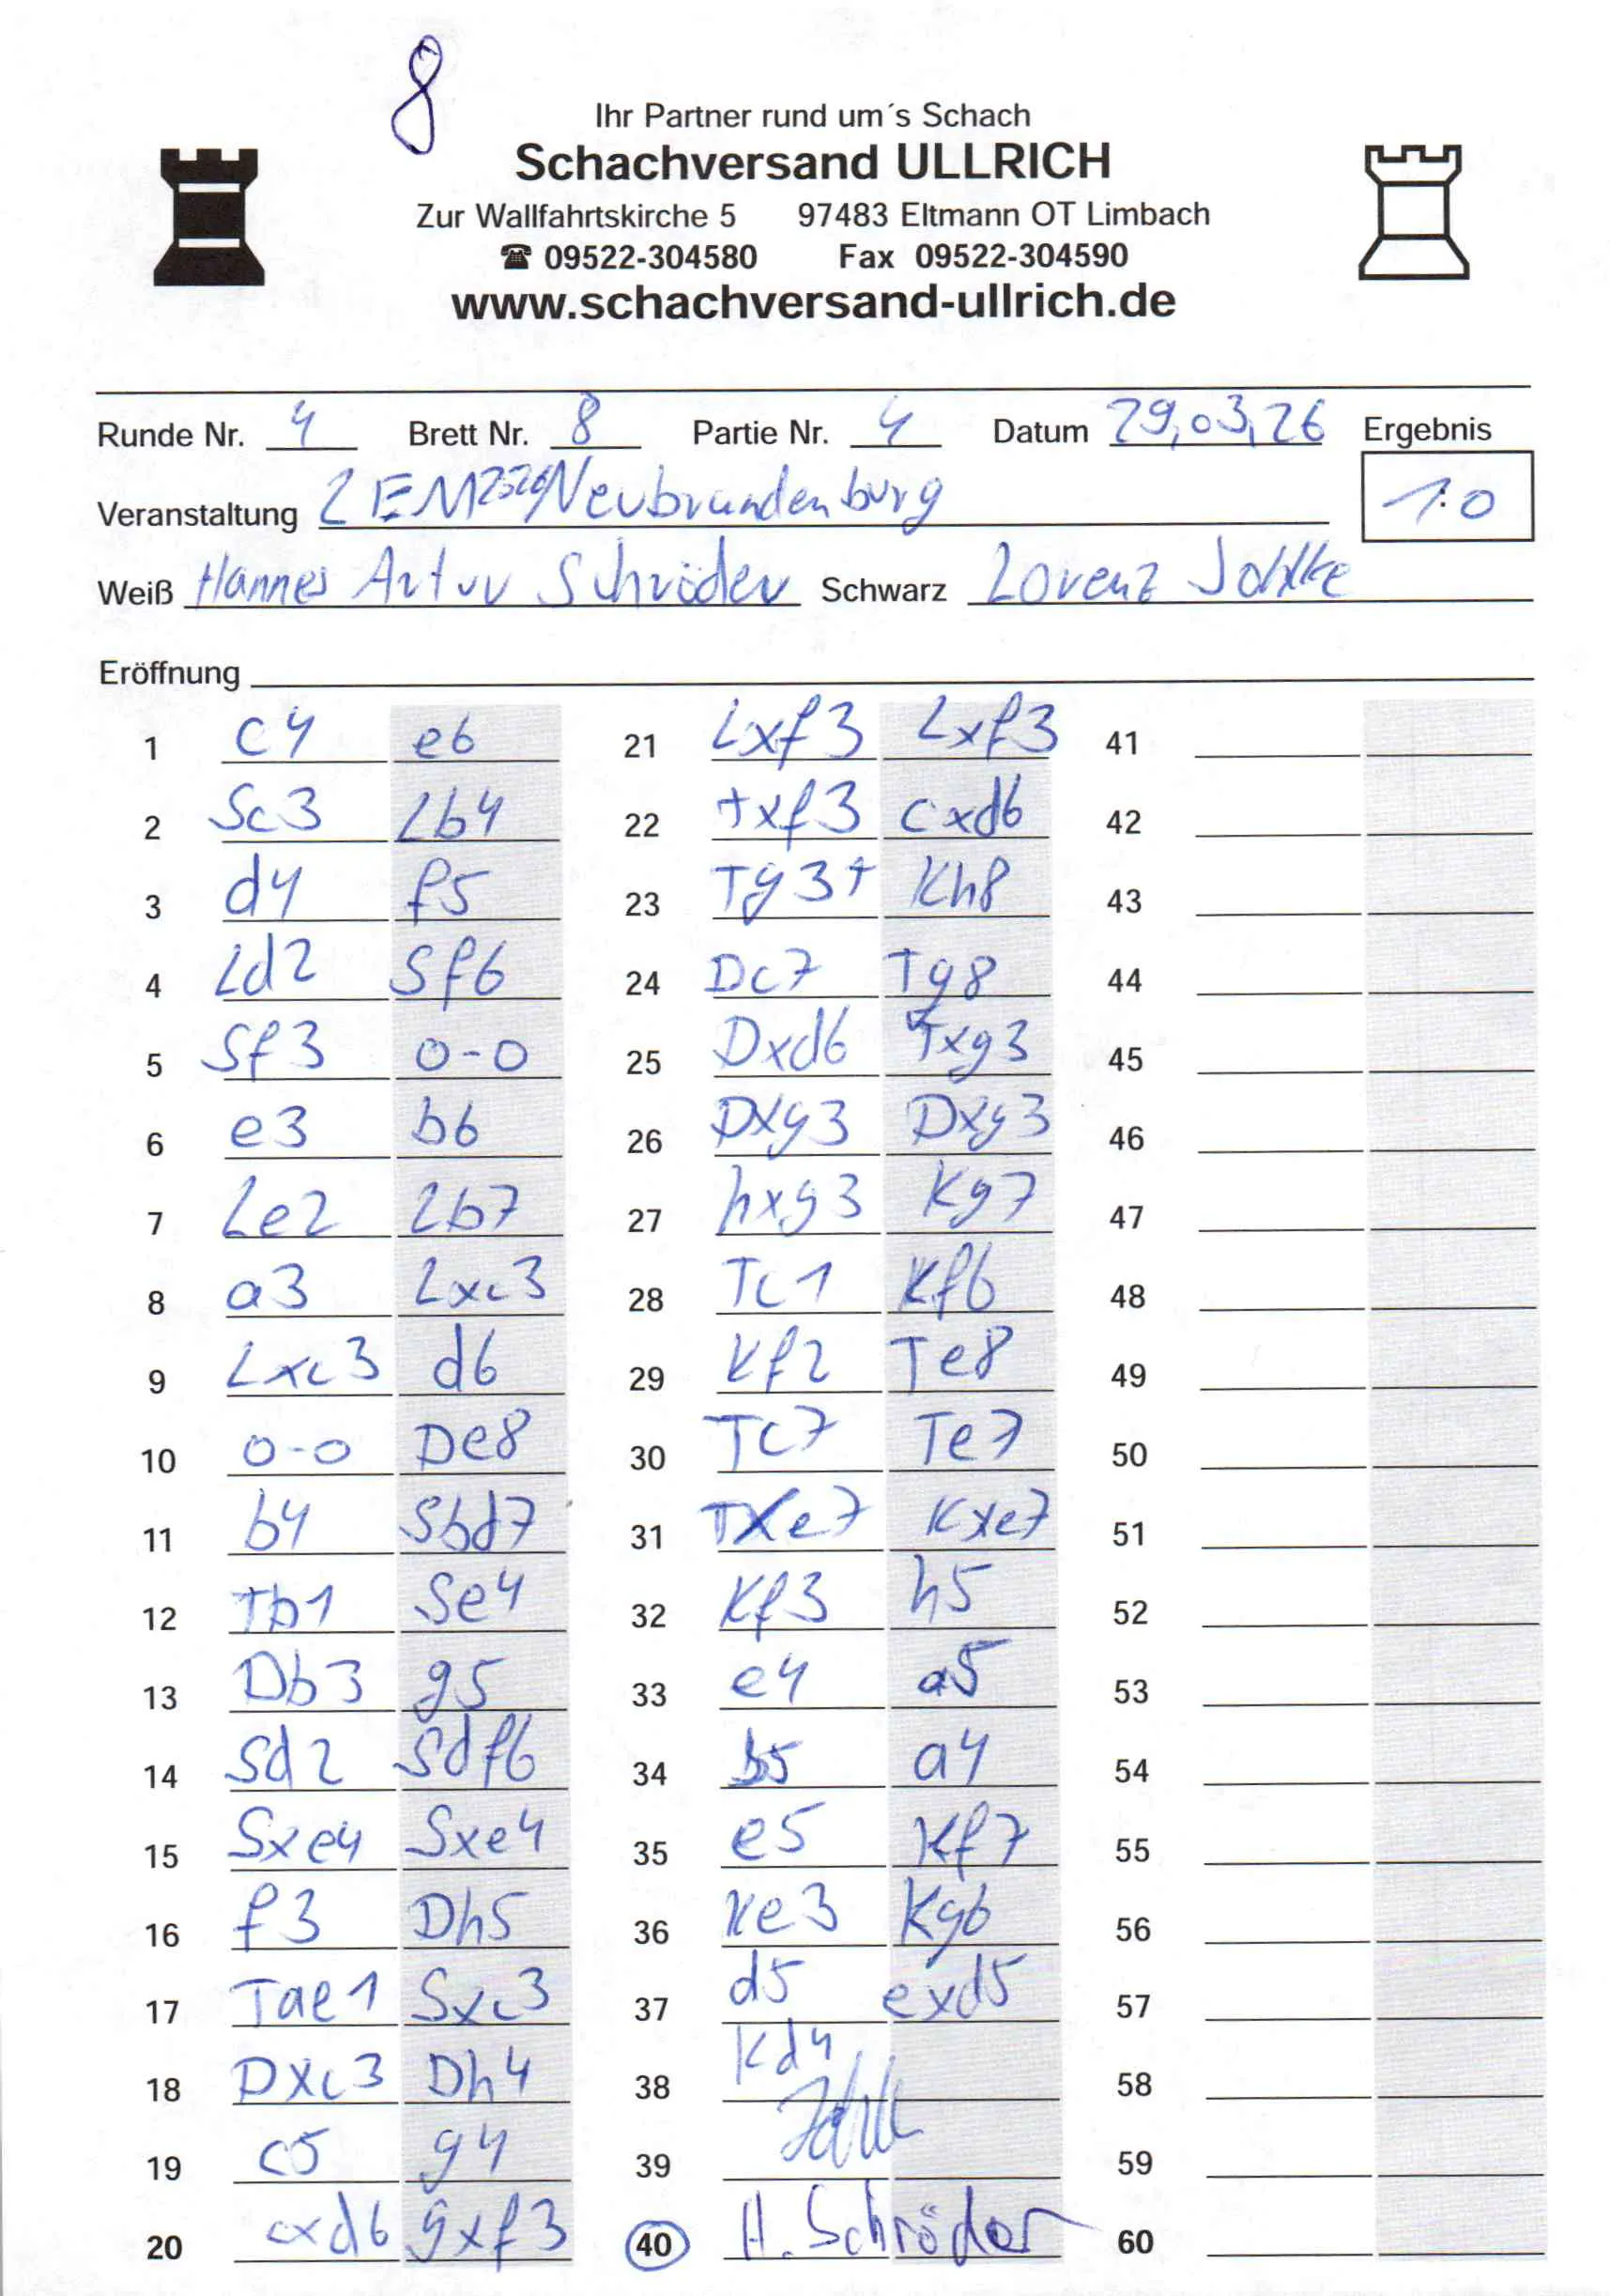 8
Ihr Partner rund um´s Schach
Schachversand ULLRICH
Zur Wallfahrtskirche 5 97483 Eltmann OT Limbach
☎ 09522-304580 Fax 09522-304590
www.schachversand-ullrich.de
Runde Nr. 4 Brett Nr. 8 Partie Nr. 4 Datum 29,03,26 Ergebnis
Veranstaltung LEM Neubrandenburg 1:0
Weiß Hannes Artur Schröder Schwarz Lorenz
Eröffnung
1 c4 e6 21 Lxf3 Lxf3 41
2 Sc3 Lb4 22 txf3 cxd6 42
3 d4 f5 23 Tg3+ Kh8 43
4 Ld2 Sf6 24 Dc7 Tg8 44
5 Sf3 0-0 25 Dxd6 Txg3 45
6 e3 b6 26 Dxg3 Dxg3 46
7 Le2 Lb7 27 hxg3 Kg7 47
8 a3 Lxc3 28 Tc1 Kf6 48
9 Lxc3 d6 29 Kf2 Te8 49
10 0-0 De8 30 Tc7 Te7 50
11 b4 Sbd7 31 TXe7 Kxe7 51
12 Tb1 Se4 32 Kf3 h5 52
13 Db3 g5 33 e4 a5 53
14 Sd2 Sdf6 34 b5 a4 54
15 Sxe4 Sxe4 35 e5 Kf7 55
16 f3 Dh5 36 Ke3 Kg6 56
17 Tae1 Sxc3 37 d5 exd5 57
18 DXc3 Dh4 38 Kd4 58
19 c5 g4 39 59
20 cxd6 gxf3 40 H. Schröder 60